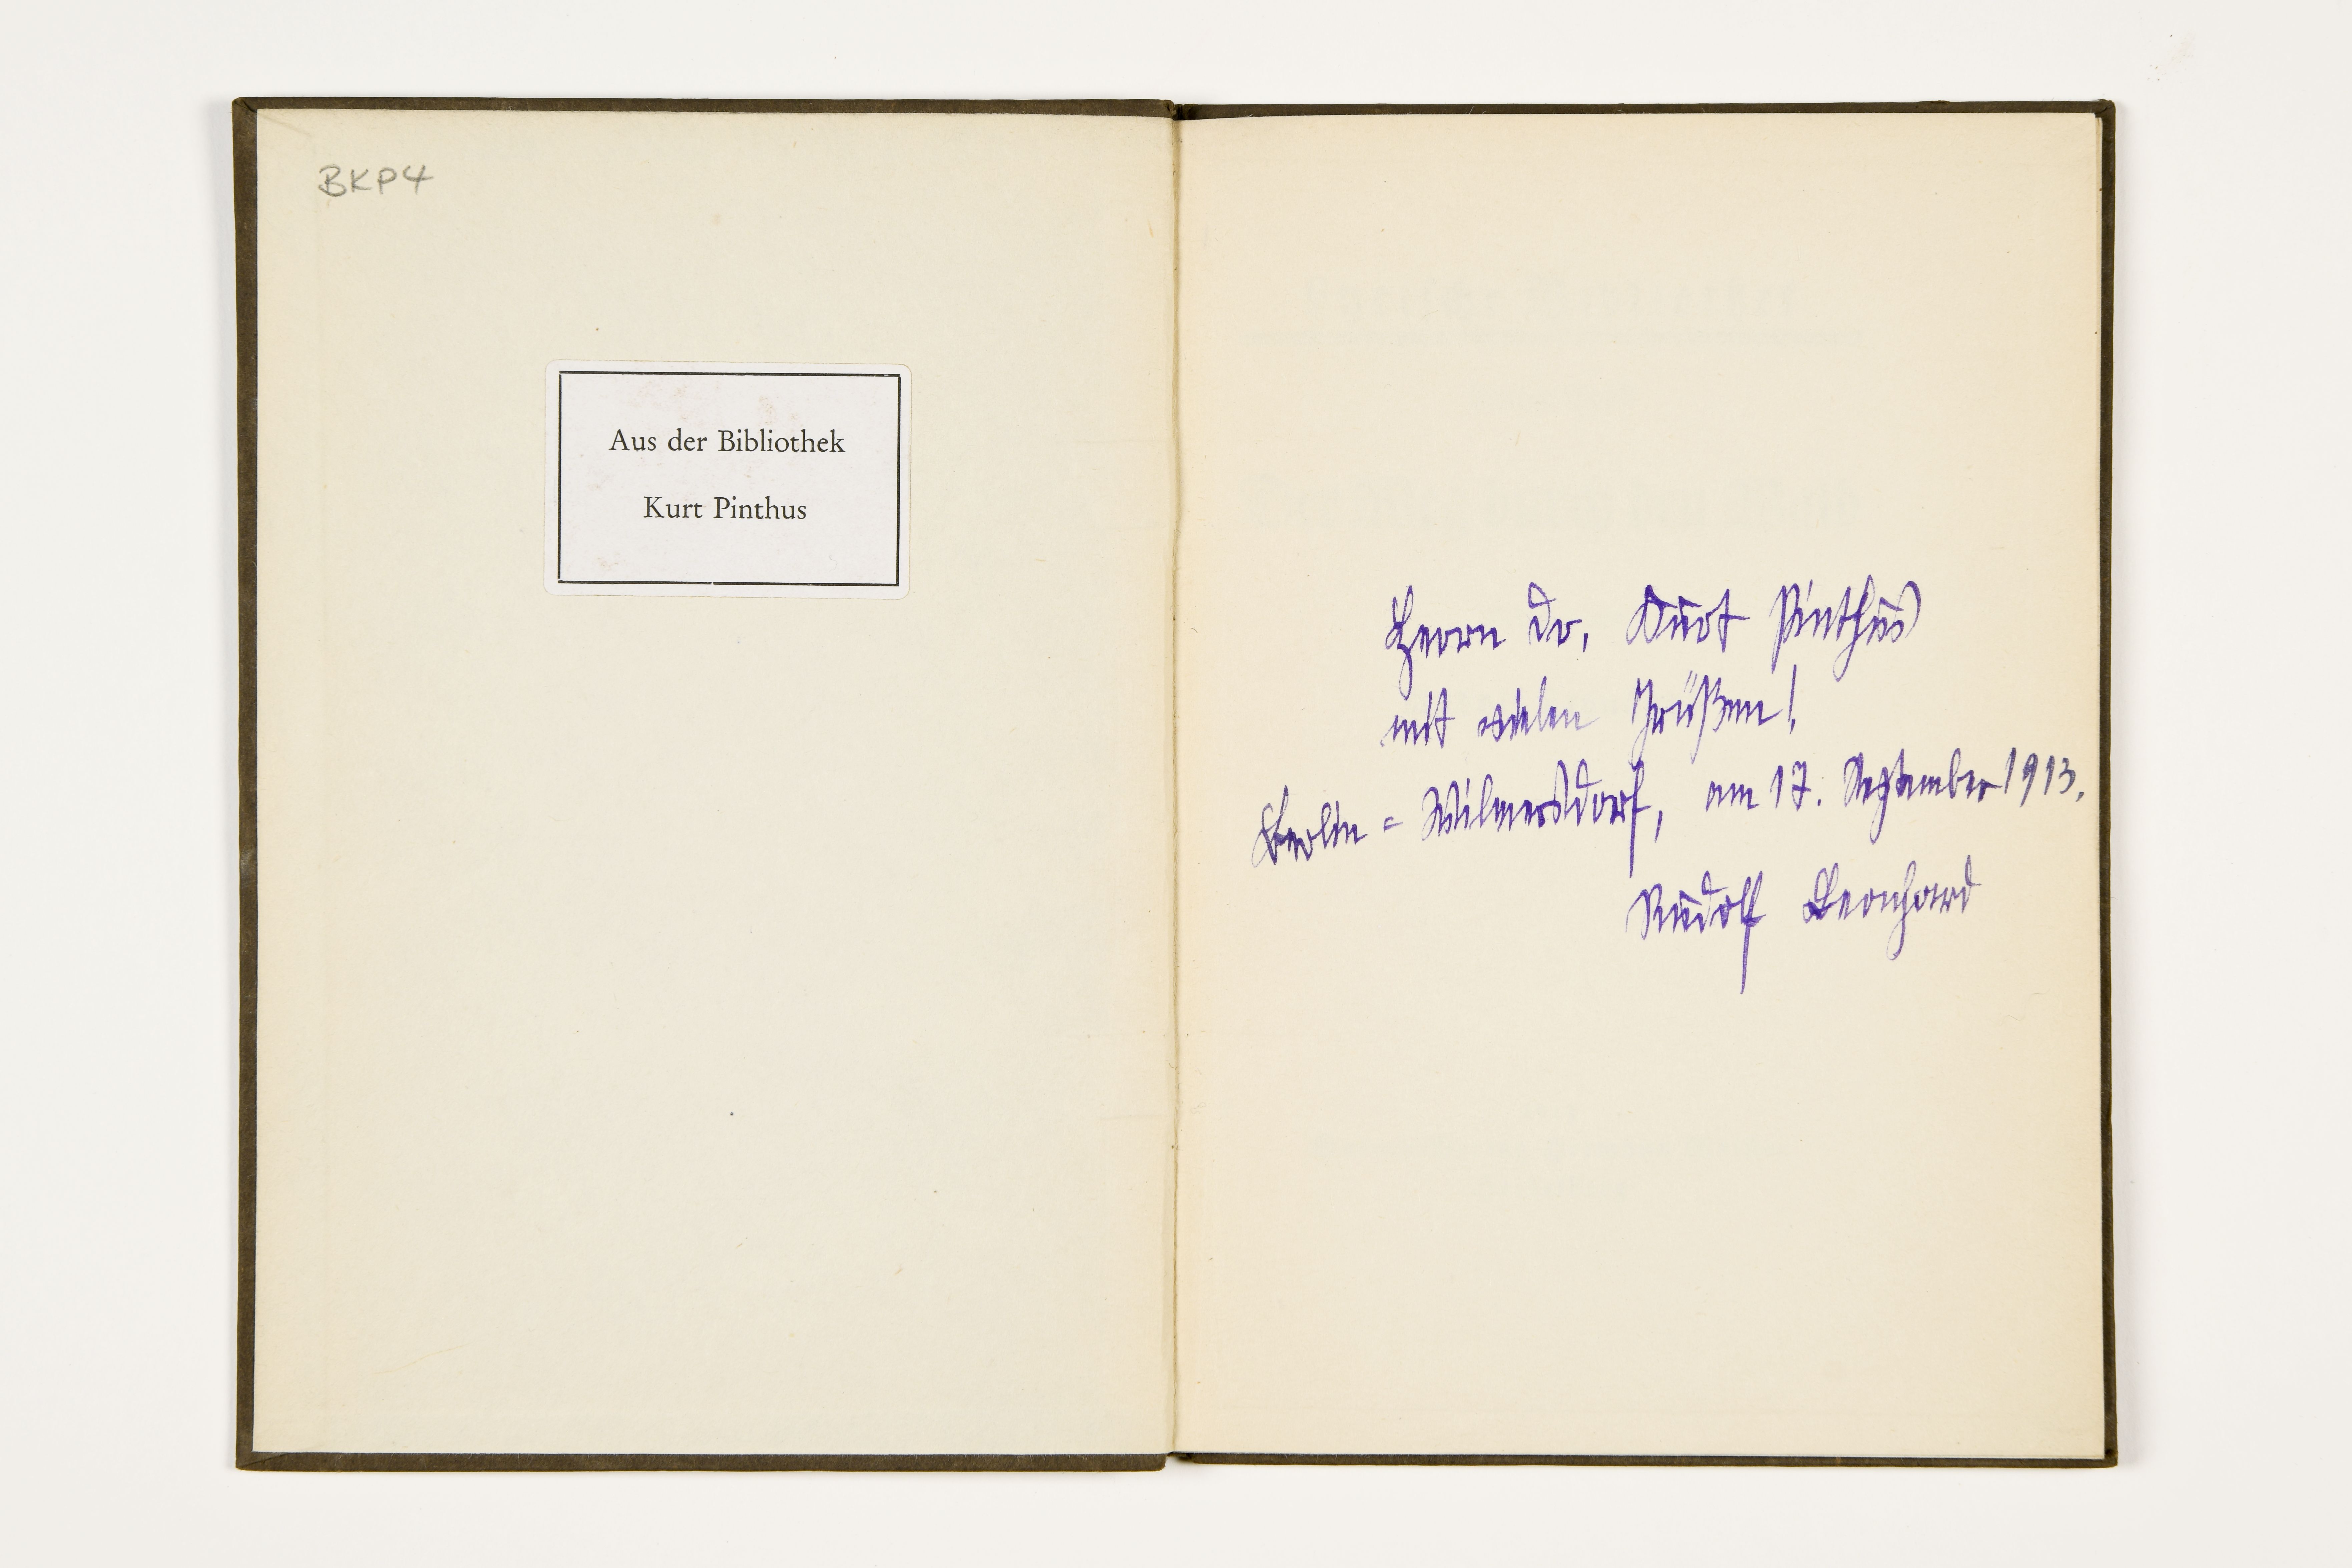 BKP4
Aus der Bibliothek
Kurt Pinthus
Herrn Dr. Kurt Pinthus
mit vielen Grüßen!
Berlin = Wilmersdorf, am 17. September 1913.
Rudolf Leonhard